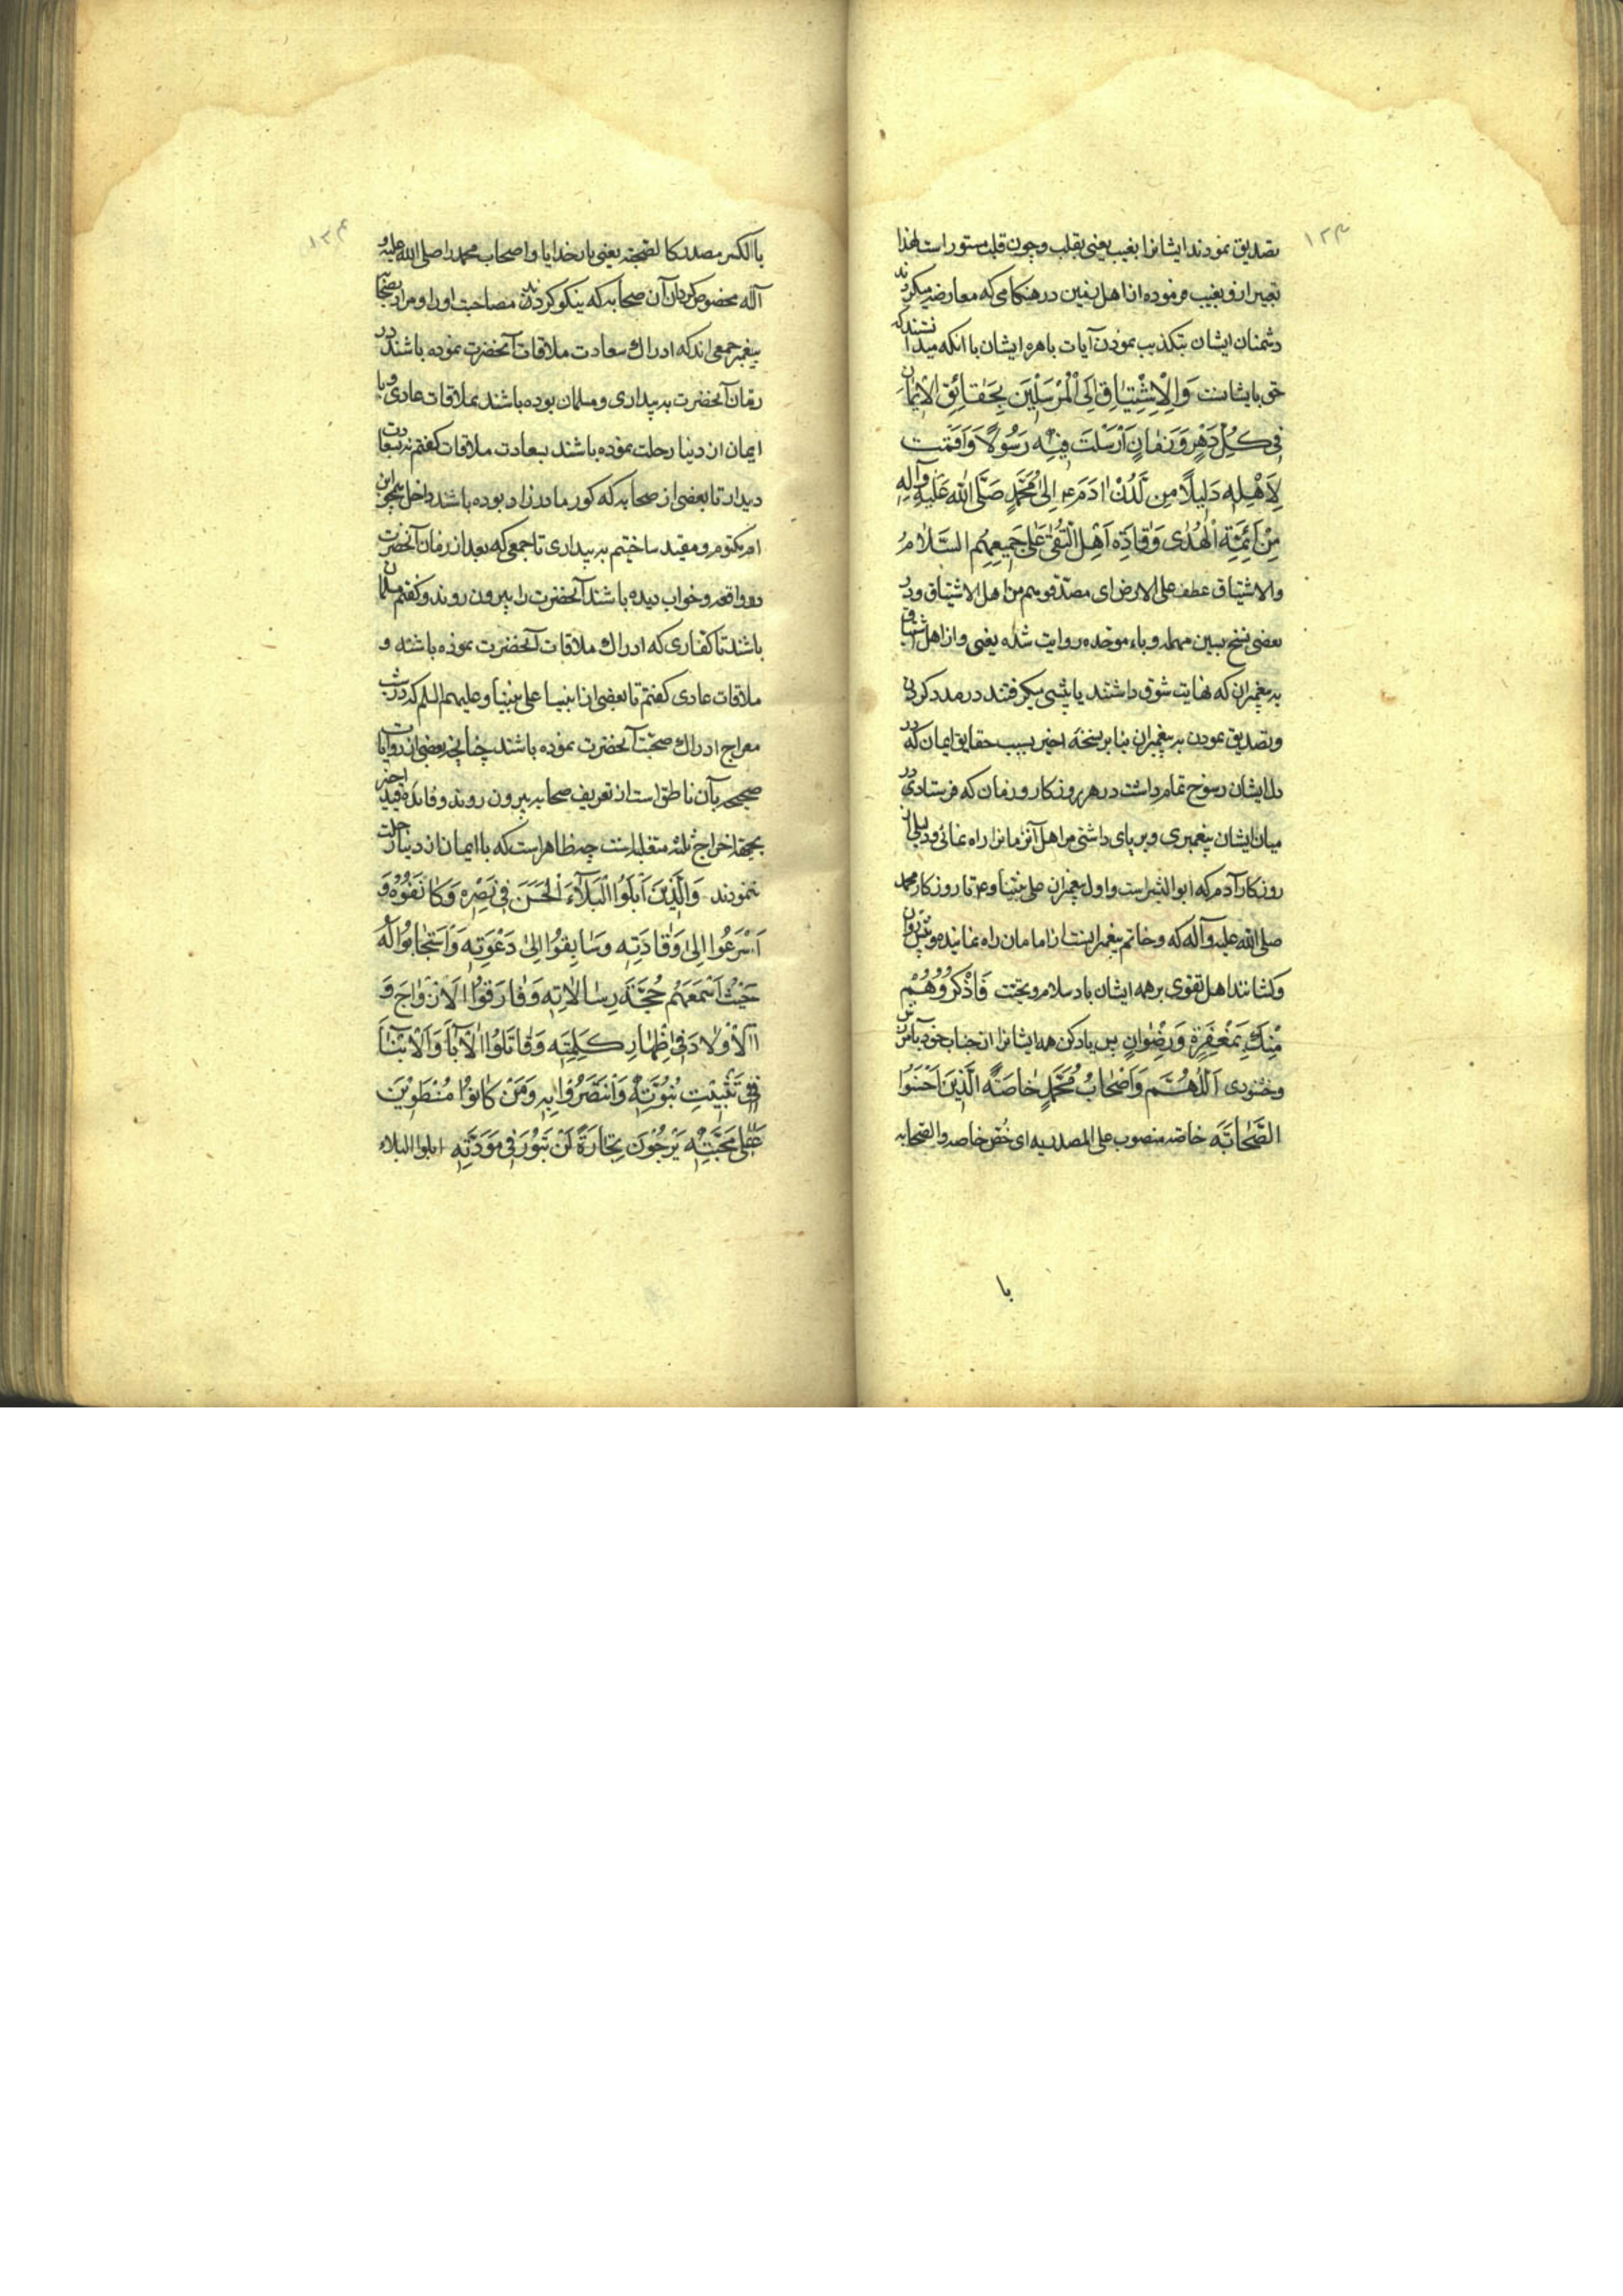 ۱۲۳
تصدیق نمودند ایشانرا بغیب یعنی بقلب و چون قلب مستور است لهذا
تعبیر ازو بغیب فرموده از اهل زمین در هنکامی که معارضه میکردند
دشمنان ایشان بتکذیب نمودن آیات باهره ایشان با انکه میدانستند که
حق با یشانست وَالْاِشْتِیٰاقِ اِلَی الْمُرْسَلِیْنَ بِحَقٰائِقِ الْاِیْمٰانِ
فِی کُلِّ دَهْرٍ وَزَمٰانٍ اَرْسَلْتَ فِیْهِ رَسُوْلًا وَاَقَمْتَ
لِاَهْلِهِ دَلِیْلًا مِن لَّدُنْ اٰدَمَ ع اِلیٰ مُحَمَّدٍ صَلَّی اللّٰه عَلَیْهِ وَآلِهِ
مِنْ اَئِمَّةِ الْهُدیٰ وَقٰادَةِ اَهْلِ التُّقیٰ عَلیٰ جَمِیعِهِمُ السَّلٰامُ
والاشتیاق عطف علی الارض ای مصدقوهم من اهل الاشتیاق و در
بعضی نسخ بسین مهمله و باء موحده روایت شده یعنی و از اهل اشتیاق
به پیغمبران که نهایت شوق داشتند یا پیشی میکرفتند در مدد کردن
و تصدیق نمودن به پیغمبران بنا بر نسخه اخیر بسبب حقایق ایمان که در
دل ایشان رسوخ تمام داشت در هر روزکار و زمان که فرستادی در
میان ایشان پیغمبری و بر پای داشتی مر اهل آنزمانرا راه نمائی و دلیلی از
روزکار آدم که ابوالبشر است و اول پیغمبران علی نبینا و ع تا روزکار محمد
صلی الله علیه و آله که و خاتم پیغمبرانست از امامان راه نماینده و پیشروان
و کشانند اهل تقوی بر همه ایشان باد سلام و تحیت فَاذْکُرْوُهُمْ
مِنْكَ بِمَغْفِرَةٍ وَرِضْوٰانٍ پس یاد کن همه ایشانرا از جناب خود بآمرزش
و خشنودی اَللّٰهُمَّ وَاَصْحٰابُ مُحَمَّدٍ خٰاصَةً الَّذِیْنَ اَحْسَنُوا
الصَّحٰابَةَ خاصة منصوب علی المصدریه ای خُصّ خاصه والصحابه
با
۱۲۴
باالکسر مصدر کالصحبة یعنی بار خدایا و اصحاب محمد را صلی الله علیه و
آله مخصوص کردان آن صحابه که نیکو کردند مصاحبت او را و مراد بصحابه
پیغمبر جمعی اند که ادراك سعادت ملاقات آنحضرت نموده باشند در
زمان آنحضرت به بیداری و مسلمان بوده باشند بملاقات عادی و با
ایمان از دنیا رحلت نموده باشند بسعادت ملاقات کفتم نه بسعادت
دیدار تا بعضی از صحابه که کور مادر زاد بوده باشند داخل همچو ابن
ام مکتوم و مقید ساختیم به بیداری تا جمعی که بعد از زمان آنحضرت
در واقعه و خواب دیده باشند آنحضرت را بیرون روند و کفتم مسلمان
باشند تا کفاری که ادراك ملاقات آنحضرت نموده باشند و
ملاقات عادی کفتم تا بعضی از انبیا علی نبینا و علیهم السلم که در شب
معراج ادراك صحبت آنحضرت نموده باشند چنانچه بعضی از روایات
صحیحه بآن ناطق است از تعریف صحابه بیرون روند و فائده قید اخیر
بجهة اخراج ثلثه متغلبه است چه ظاهر است که با ایمان از دنیا رحلت
ننمودند وَالَّذِیْنَ اَبْلَوُا الْبَلٰآءَ الْحَسَنَ فِی نَصْرِهِ وَکٰانَفُوْهُ وَ
اَسْرَعُوا اِلیٰ وَفٰادَتِهِ وَسٰابَقُوْا اِلیٰ دَعْوَتِهِ وَاَسْتَجٰابُوْا لَهُ
حَیْثُ اَسْمَعَهُمْ حُجَّةَ رِسٰالٰاتِهِ وَفٰارَقُوْا الْاَزْوٰاجَ وَ
الْاَوْلٰادَ فِی اِظْهٰارِ کَلِمَتِهِ وَقٰاتَلُوْا الْآبٰآءَ وَالْاَبْنٰآءَ
فِی تَثْبِیْتِ نُبُوَّتِهِ وَانْتَصَرُوْا بِهِ وَمَنْ کٰانُوْا مُنْطَوِیْنَ
عَلیٰ مَحَبَّتِهِ یَرْجُوْنَ تِجٰارَةً لَنْ تَبُوْرَ فِی مَوَدَّتِهِ ابلوا البلاء